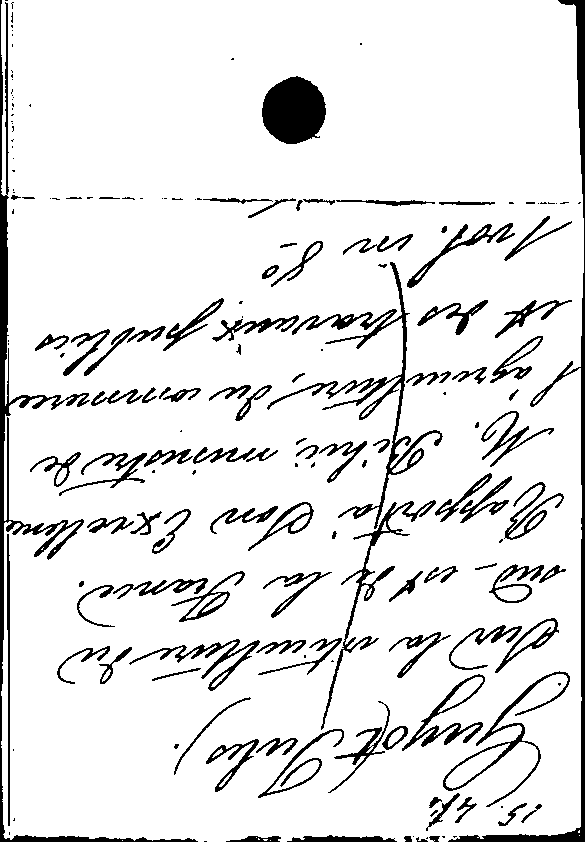 15. 47.
Guyot (Jules).
Sur la viticulture du
sud-est de la France.
Rapport à Son Excellence
M. Béhic, ministre de
l'agriculture, du commerce
et des travaux publics
1 vol. in 8º